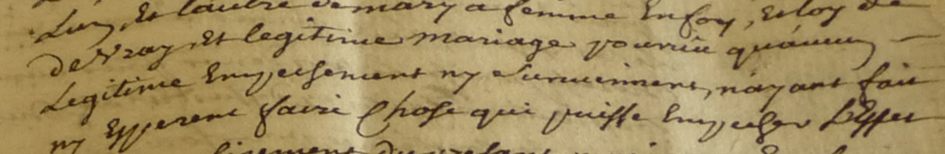 Luy, Et lautre de mary a femme En foy, Et loy de
de Vray, Et legitime mariage pourvüu qu'aucun
Legitime Empechement ny Survienne, n'ayant fait
ny Esperent faire Chose qui puisse Empecher L'effet